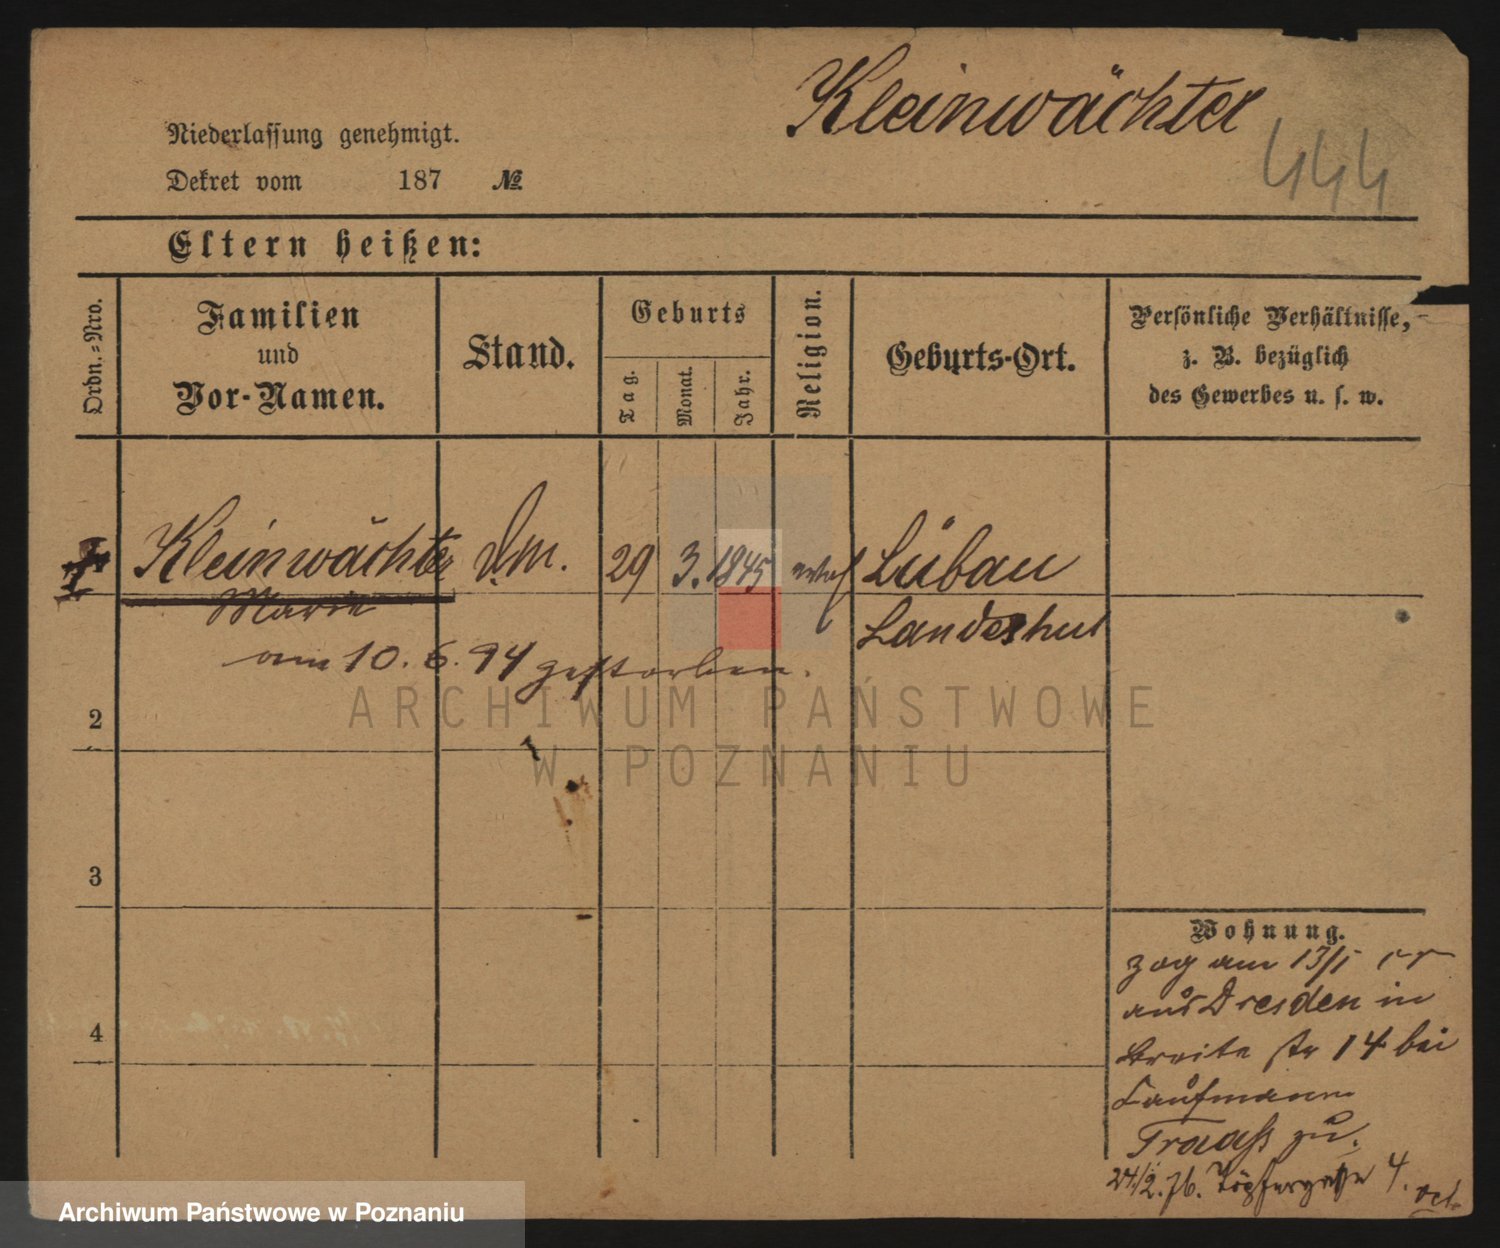 Kleinwächter
444
Niederlassung genehmigt.
Dekret vom 187 №
Eltern heißen:
Ordn.-Nro.
Familien
und
Vor-Namen.
Stand.
Geburts
Tag.
Monat.
Jahr.
Religion.
Geburts-Ort.
Persönliche Verhältnisse,
z. B. bezüglich
des Gewerbes u. s. w.
Kleinwächter 29 3. 1845 Lübau
Marie Landeshut
am 10. 6. 94 gestorben.
2
3
4
Wohnung.
zog am 13/1
aus Dresden in
Breite str 14 bei
Kaufmann
Traaß zu.
24/2. 76. Töpfergasse 4.
ARCHIWUM PAŃSTWOWE
W POZNANIU
Archiwum Państwowe w Poznaniu